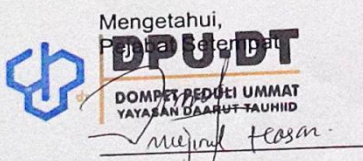 Mengetahui,
Pejabat Setempat
DPU-DT
DOMPET PEDULI UMMAT
YAYASAN DAARUT TAUHIID